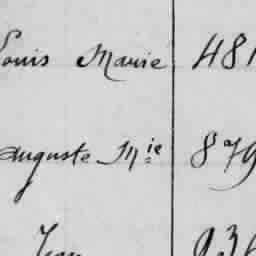 Louis Marie 481
Auguste Mie 879
Jean 936